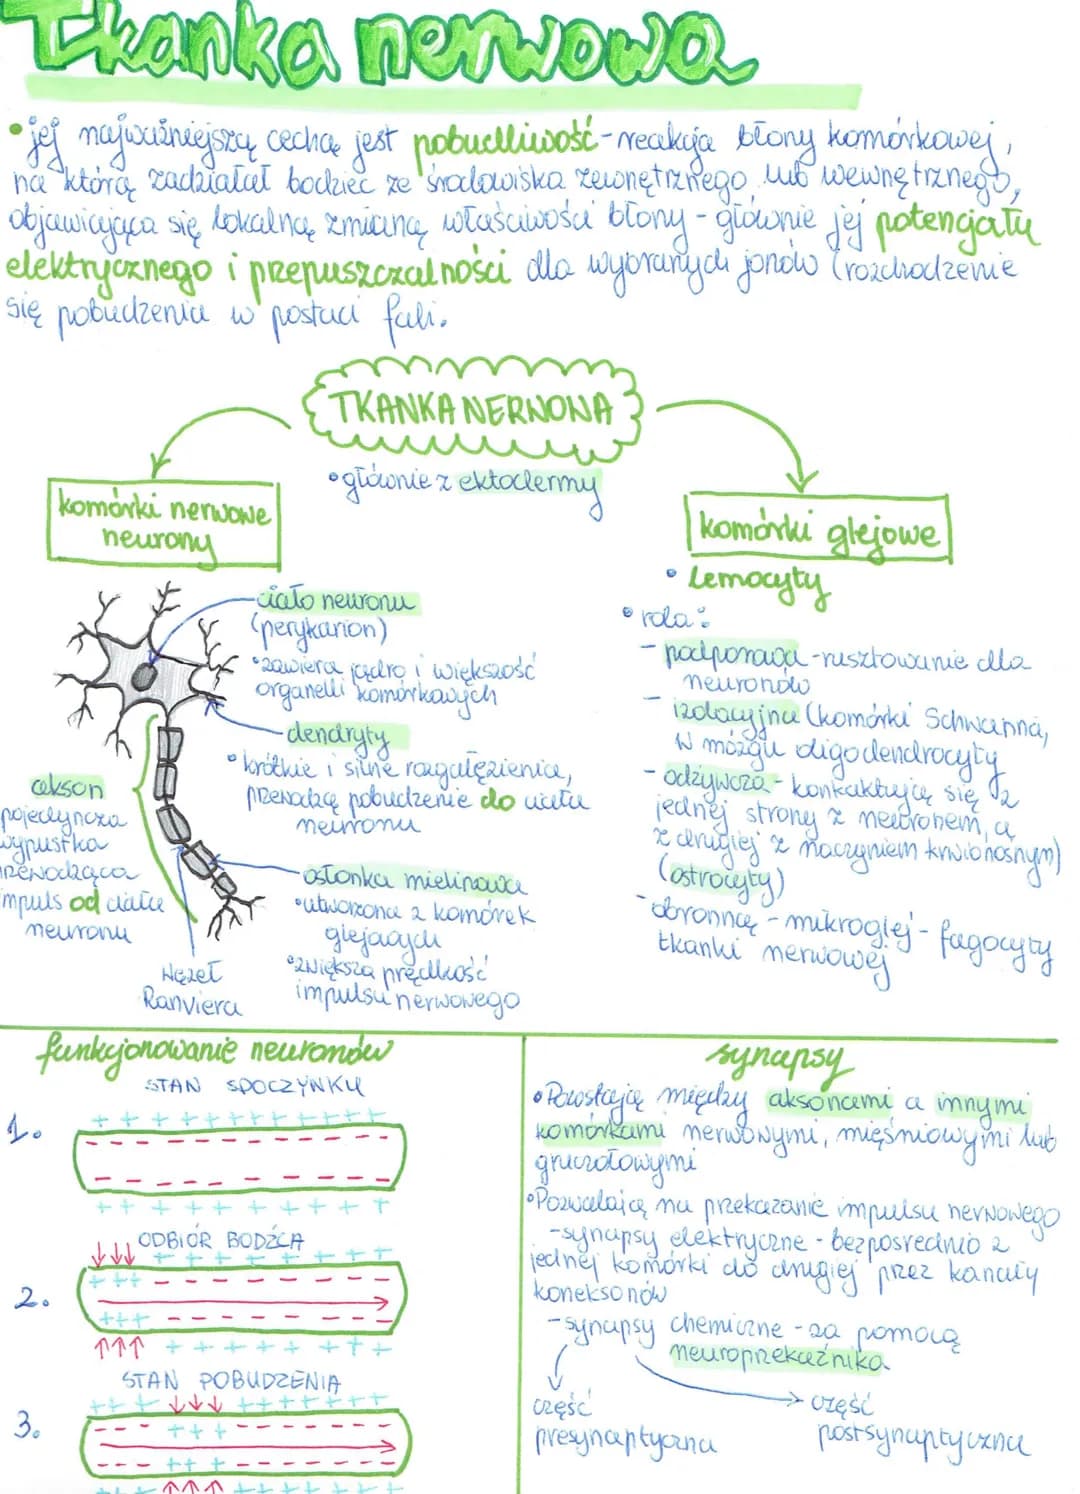 Tkanka nerwowa
• jej najważniejszą cechą jest pobudliwość - reakcja błony komórkowej,
na którą zadziałał bodziec ze środowiska zewnętrznego lub wewnętrznego,
objawiająca się lokalną zmianą właściwości błony - głównie jej potencjału
elektrycznego i przepuszczalności dla wybranych jonów (rozchodzenie
się pobudzenia w postaci fali.
TKANKA NERWOWA
• głównie z ektodermy
komórki nerwowe
neurony
ciało neuronu
(perykarion)
• zawiera jądro i większość
organelli komórkowych
dendryty
• krótkie i silne rozgałęzienia,
przewodzą pobudzenie do ciała
neuronu
akson
pojedyncza
wypustka
przewodząca
impuls od ciała
neuronu
osłonka mielinowa
• utworzona z komórek
glejących
• zwiększa prędkość
impulsu nerwowego
Węzeł
Ranviera
komórki glejowe
• Lemocyty
• rola:
- podporowa - rusztowanie dla
neuronów
- izolacyjna (komórki Schwanna,
w mózgu oligodendrocyty
- odżywcza - kontaktują się z
jednej strony z neuronem, a
z drugiej z naczyniem krwionośnym)
(astrocyty)
- obronną - mikroglej - fagocyty
tkanki nerwowej
funkcjonowanie neuronów
STAN SPOCZYNKU
1.
+ + + + + + + + + + + +
- - - - - - - - - - -
- - - - - - - - - -
+ + + + + + + + + + +
ODBIÓR BODŹCA
2.
+ + + + + + + +
+ + + - - - - - - - - -
+ + + - - - - - - - -
+ + + + + + + + +
STAN POBUDZENIA
3.
+ + + + + + + + + +
- - + + + - - - - - -
- - - + + + - - - - - -
+ + + + + + + + + +
synapsy
• Powstają między aksonami a innymi
komórkami nerwowymi, mięśniowymi lub
gruczołowymi
• Pozwalają na przekazanie impulsu nerwowego
- synapsy elektryczne - bezpośrednio z
jednej komórki do drugiej przez kanały
koneksonów
- synapsy chemiczne - za pomocą
neuroprzekaźnika
część
presynaptyczna
część
postsynaptyczna